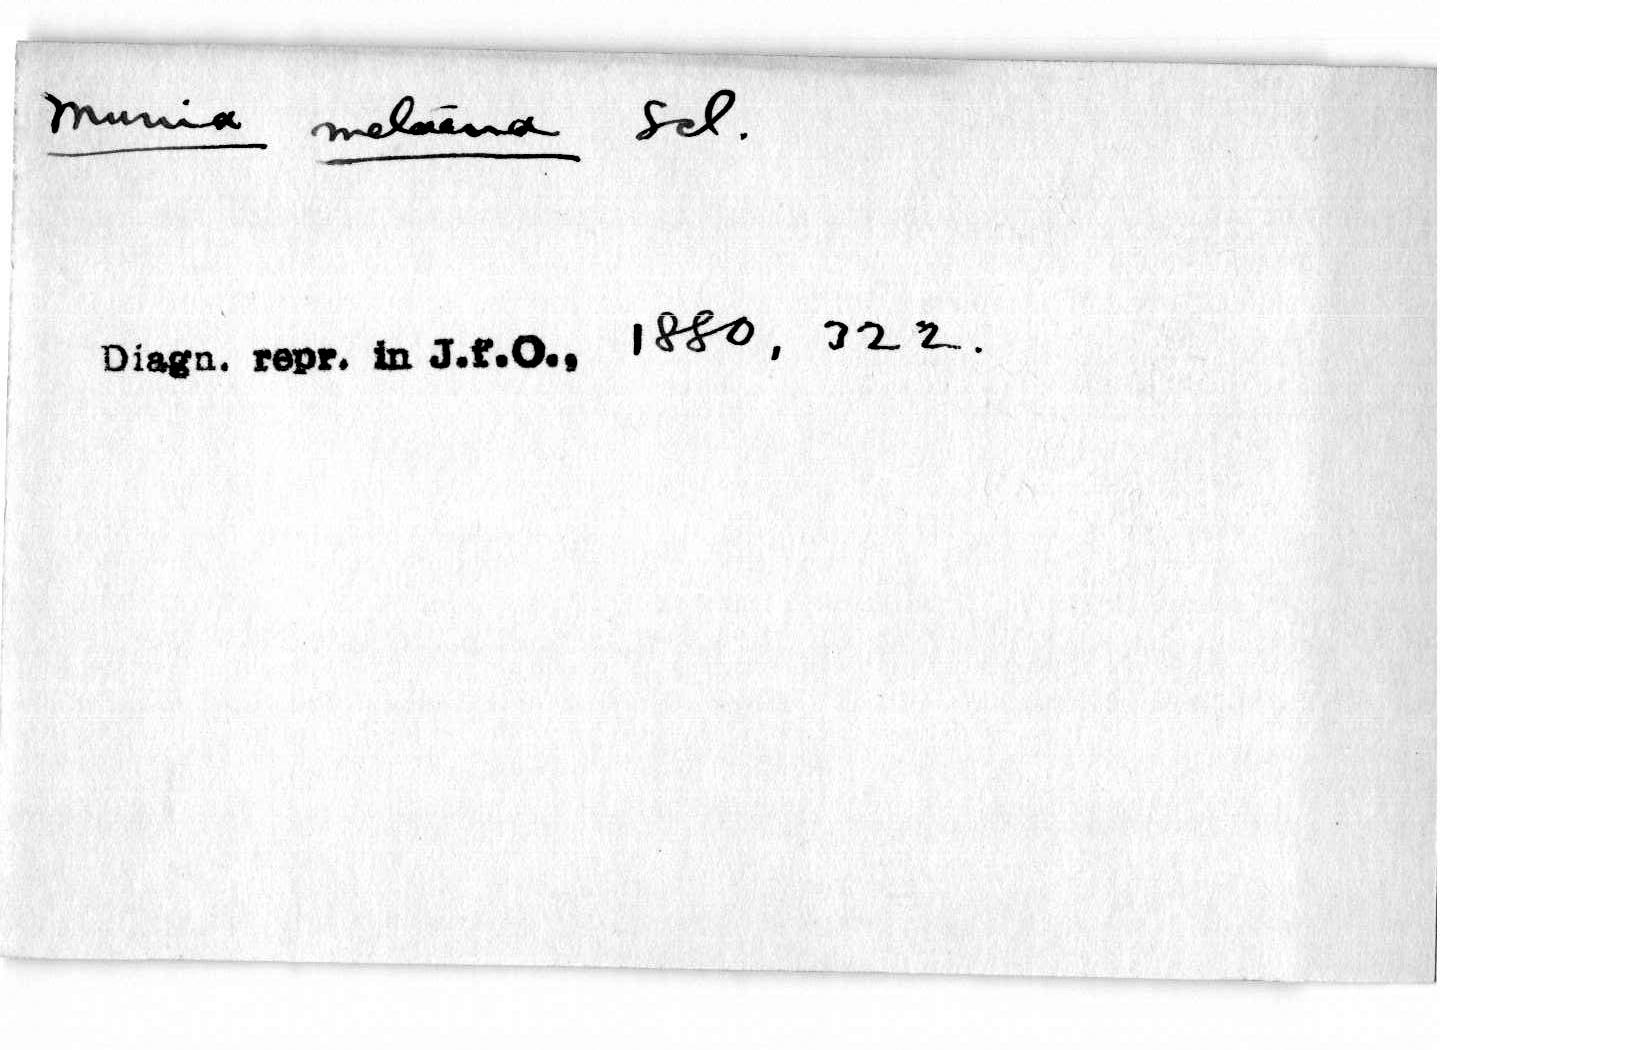 Munia melaena Scl.
Diagn. repr. in J.f.O., 1880, 322.